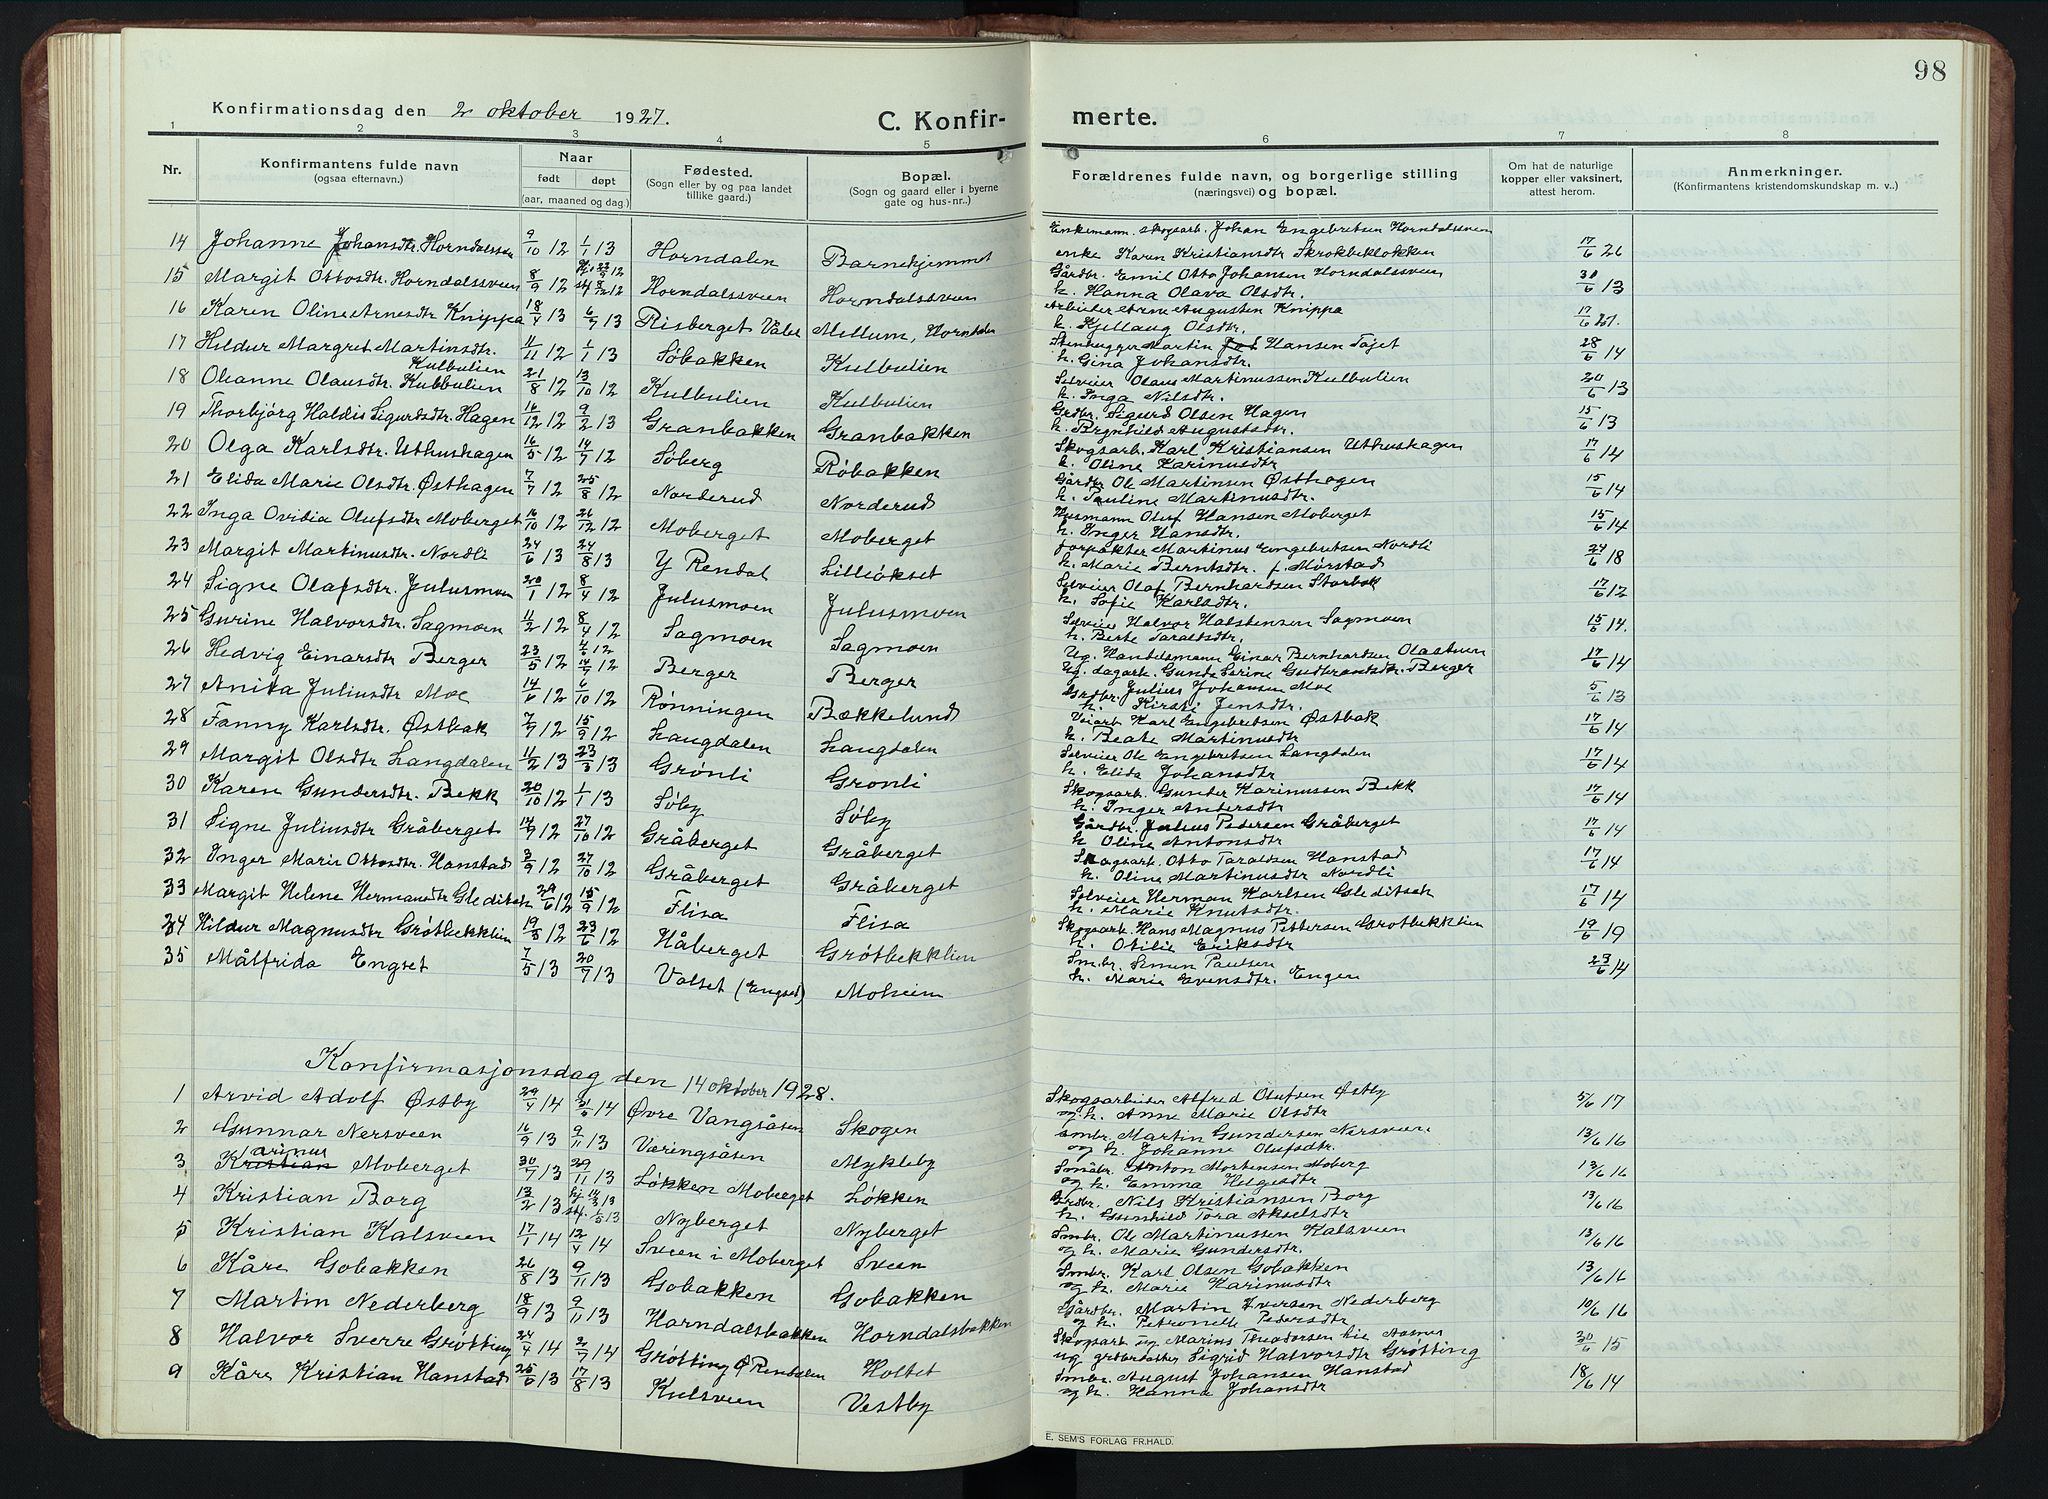 98
Konfirmationsdag den 2 oktober 1927.
C. Konfir-
merte.
1 2 3 4 5 6 7 8
Nr.
Konfirmantens fulde navn
(ogsaa efternavn.)
Naar
født døpt
(aar, maaned og dag.)
Fødested.
(Sogn eller by og paa landet
tillike gaard.)
Bopæl.
(Sogn og gaard eller i byerne
gate og hus-nr..)
Forældrenes fulde navn, og borgerlige stilling
(næringsvei) og bopæl.
Om hat de naturlige
kopper eller vaksinert,
attest herom.
Anmerkninger.
(Konfirmantens kristendomskundskap m. v..)
14 Johanne Johansdtr. Horndalsveen 9/10 12 1/1 13 Horndalen Barnehjemmet Enkemann. skogsarb. Johan Engebretsen Horndalsveen
enke Karen Kristiansdtr Skrokbekløkken 17/6 26
15 Margit Ottosdtr. Horndalssveen 8/9 12 Horndalssveen Horndalssveen Gårdbr. Emil Otto Johansen Horndalssveen
h. Hanna Olava Olsdtr. 30/6 13
16 Karen Oline Arnesdtr Knippa 18/4 13 6/7 13 Risberget Våler Mellum, Horndalen Arbeider Arne Augusten Knippa
h. Kjellaug Olsdtr. 17/6 27.
17 Hildur Margret Martinsdtr. Kulbulien 11/11 12 1/1 13 Søbakken Kulbulien Stenhugger Martin Hansen Tajet
h. Gina Johansdtr. 28/6 14
18 Ohanne Olausdtr. Kulbulien 21/8 12 13/10 12 Kulbulien Kulbulien Selveier Olaus Martinussen Kulbulien
h. Inga Nilsdtr. 20/6 13
19 Thorbjørg Haldis Sigurdsdtr. Hagen 16/12 12 9/2 13 Granbakken Granbakken Grdbr. Sigurd Olsen Hagen
h. Brynhild Augustsdtr. 15/6 13
20 Olga Karlsdtr. Uthushagen 16/5 12 14/7 12 Søberg Røbakken Skogsarb. Karl Kristiansen Uthushagen
h. Oline Karinusdtr 17/6 14
21 Elida Marie Olsdtr. Østhagen 7/7 12 25/8 12 Norderud Norderud Gårdbr Ole Martinsen Østhagen
h. Pauline Martinusdtr. 15/6 14
22 Inga Ovidia Olufsdtr Moberget 16/10 12 26/12 12 Moberget Moberget Husmann Oluf Hansen Moberget
h. Inger Hansdtr. 15/6 14
23 Margit Martinusdtr. Nordli 24/6 13 24/8 13 Y Rendal Lilleökset forpakter Martinus Engebretsen Nordli
h. Marie Berntsdtr. f. Mørstad 24/6 18
24 Signe Olafsdtr. Julusmoen 20/1 12 8/4 12 Julusmoen Julusmoen Selveier Olaf Bernhardsen Storbæk
h. Sofie Karlsdtr. 17/6 12
25 Gurine Halvorsdtr. Sagmoen 11/2 12 8/4 12 Sagmoen Sagmoen Selveier Halvor Halstensen Sagmoen
h. Berte Taraldsdtr. 15/6 14.
26 Hedvig Einarsdtr Berger 23/5 12 14/7 12 Berger Berger Ug. Handelsmann Einar Bernhardsen Olastuen
Ug. dagarb. Gunda Serine Gudbrandsdtr. Berger 17/6 14
27 Anita Juliusdtr Moe 14/6 12 6/10 12 Rønningen Bækkelund Grdbr. Julius Johansen Moe
h. Kirsti Jensdtr. 5/6 13
28 Fanny Karlsdtr. Østbak 7/9 12 15/9 12 Langdalen Langdalen Veiarb Karl Engebretsen Østbak
h. Beate Martinusdtr 17/6 14
29 Margit Olsdtr Langdalen 11/2 13 23/3 13 Grønli Gronli Selveier Ole Engebretsen Langdalen
h. Elida Johansdtr 17/6 14
30 Karen Gundersdtr. Bekk 20/10 12 1/1 13 Søby Søby Skogsarb. Gunder Karinussen Bekk
h. Inger Andersdtr 17/6 14
31 Signe Juliusdtr Gråberget 14/9 12 27/10 12 Gråberget Gråberget Gårdbr. Julius Pedersen Gråberget
h Oline Antonsdtr 17/6 14
32 Inger Marie Ottosdtr. Hanstad 3/9 12 27/10 12 Gråberget Gråberget Skogsarb. Otto Taraldsen Hanstad
h. Oline Martinusdtr Nordli 17/6 14
33 Margit Helene Hermansdtr Gleditsch 29/6 12 15/9 12 Flisa Flisa Selveier Herman Karlsen Gleditsch
h. Marie Knutsdtr. 17/6 14
34 Hildur Magnusdtr Grøtbekklien 19/3 12 23/6 12 Håberget Grøtbekklien Skogsarb. Hans Magnus Pettersen Grøtbekklien
h. Otilie Eriksdtr 19/6 19
35 Målfrida Engset 7/5 13 20/7 13 Valset (Engset) Moheim Smbr. Simen Paulsen
h. Marie Evensdtr. Engen 23/6 14
Konfirmasjonsdag den 14 oktober 1928.
1 Arvid Adolf Østby 29/4 14 14 Øvre Vangsåsen Skogen Skogsarbeider Alfred Olufsen Østby
og h. Anne Marie Olsdtr 5/6 17
2 Gunnar Nersveen 16/9 13 9/11 13 Væringsåsen Mykleby smbr. Martin Gundersen Nersveen.
og h. Johanne Olufsdtr. 13/6 16
3 Karinus Moberget 30/7 13 29/11 13 Løkken Moberget Løkken Småbr. Anton Mortensen Moberg
og h. Emma Helgesdtr 13/6 16
4 Kristian Borg 13/2 13 Nyberget Nyberget Grdbr. Nils Kristiansen Borg
h. Gunhild Tora Akselsdtr 13/6 16
5 Kristian Kalsveen 17/1 14 12/4 14 Sveen i Moberget Sveen Smbr. Ole Martinussen Kalsveen
og h. Marie Gundersdtr. 13/6 16
6 Kåre Gobakken 26/8 13 9/11 13 Gobakken Gobakken Smbr. Karl Olsen Gobakken
og h. Marie Karinusdtr 13/6 16
7 Martin Nederberg 18/9 13 9/11 13 Horndalsbakken Horndalsbakken Gårdbr. Martin Iversen Nederberg
og h. Petronelle Pedersdtr 10/6 16
8 Halvor Sverre Grøtting 24/4 14 2/7 14 Grøtting Ø Rendalen Holtet Skogsarb ug Marius Theodorsen lie Asmes
ug grdbrdatter Sigrid Halvorsdtr Grøtting 30/6 15
9 Kåre Kristian Hanstad 25/6 13 17/8 13 Kulsveen Vestby Smbr. August Johansen Hanstad
og h. Hanna Johansdtr 18/6 14
E. SEM'S FORLAG FR.HALD.